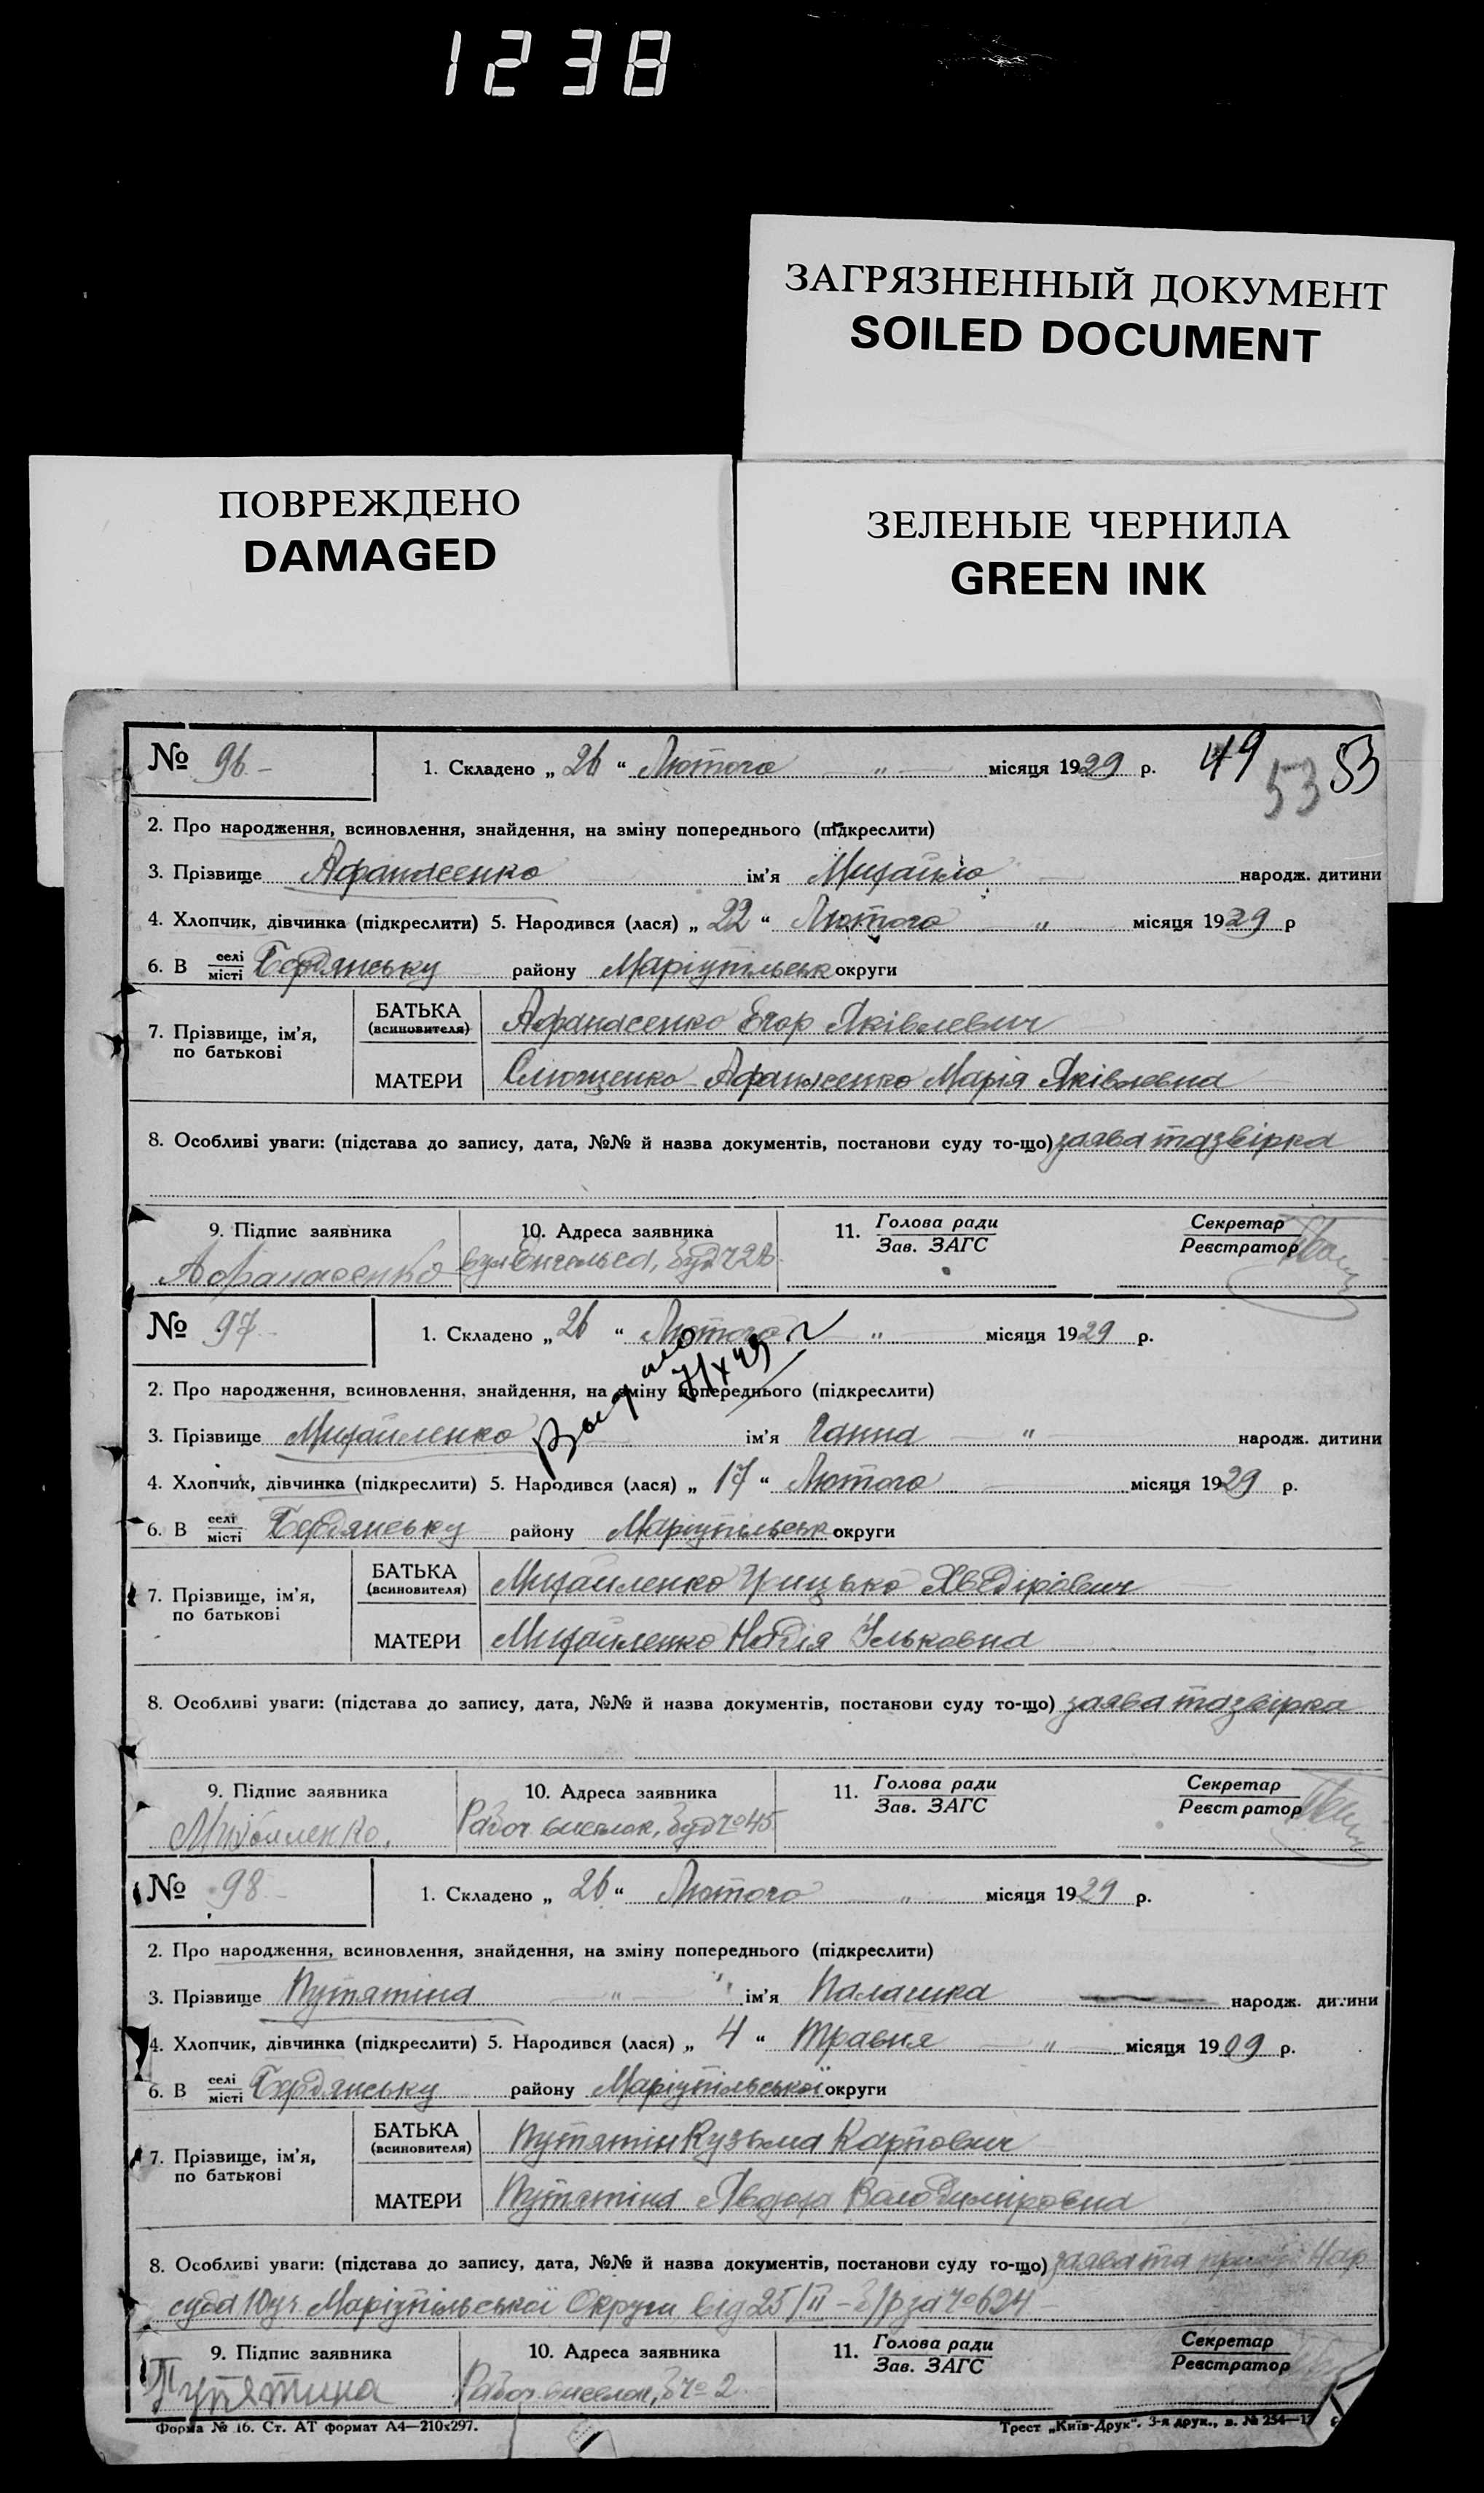 1238
ЗАГРЯЗНЕННЫЙ ДОКУМЕНТ
SOILED DOCUMENT
ПОВРЕЖДЕНО
DAMAGED
ЗЕЛЕНЫЕ ЧЕРНИЛА
GREEN INK
№ 96 - 1. Складено „ 26 “ Лютого — „ — місяця 1929 р. 49 53 53
2. Про народження, всиновлення, знайдення, на зміну попереднього (підкреслити)
3. Прізвище Афанасенко ім'я Михайло народж. дитини
4. Хлопчик, дівчинка (підкреслити) 5. Народився (лася) „ 22 “ Лютого — „ — місяця 1929 р
6. В селі/місті Бердянську району Маріупільськ округи
7. Прізвище, ім'я, по батькові
БАТЬКА (всиновителя) Афанасенко Егор Яківлевич
МАТЕРИ Слющенко-Афанасенко Марія Яківлевна
8. Особливі уваги: (підстава до запису, дата, №№ й назва документів, постанови суду то-що) заява та звірка
9. Підпис заявника 10. Адреса заявника 11. Голова ради/Зав. ЗАГС Секретар/Реєстратор
Афанасенко вул Енгельса, буд
№ 97 - 1. Складено „ 26 “ Лютого „ місяця 1929 р.
2. Про народження, всиновлення, знайдення, на зміну попереднього (підкреслити)
3. Прізвище Михайленко ім'я Ганна — „ — народж. дитини
4. Хлопчик, дівчинка (підкреслити) 5. Народився (лася) „ 17 “ Лютого — місяця 1929 р.
6. В селі/місті Бердянську району Маріупільськ округи
7. Прізвище, ім'я, по батькові
БАТЬКА (всиновителя) Михайленко Грицько Хведірович
МАТЕРИ Михайленко Надія Ільковна
8. Особливі уваги: (підстава до запису, дата, №№ й назва документів, постанови суду то-що) заява та звірка
9. Підпис заявника 10. Адреса заявника 11. Голова ради/Зав. ЗАГС Секретар/Реєстратор
Михайленко. Рабоч виселок, буд № 45
№ 98 - 1. Складено „ 26 “ Лютого „ місяця 1929 р.
2. Про народження, всиновлення, знайдення, на зміну попереднього (підкреслити)
3. Прізвище Путятіна — „ — ім'я Палашка народж. дитини
4. Хлопчик, дівчинка (підкреслити) 5. Народився (лася) „ 4 “ Травня — „ — місяця 1909 р.
6. В селі/місті Бердянську району Маріупільської округи
7. Прізвище, ім'я, по батькові
БАТЬКА (всиновителя) Путятін Кузьма Карпович
МАТЕРИ Путятіна Явдоха Володиміровна
8. Особливі уваги: (підстава до запису, дата, №№ й назва документів, постанови суду то-що) заява та Нар
суда 10 уч Маріупільської Округи від 25/II - за № 624 -
9. Підпис заявника 10. Адреса заявника 11. Голова ради/Зав. ЗАГС Секретар/Реєстратор
Путятина Рабоч виселок, б № 2
Форма № 16. Ст. АТ формат А4—210х297. Трест „Київ-Друк“. 3-я друк., в. № 254—